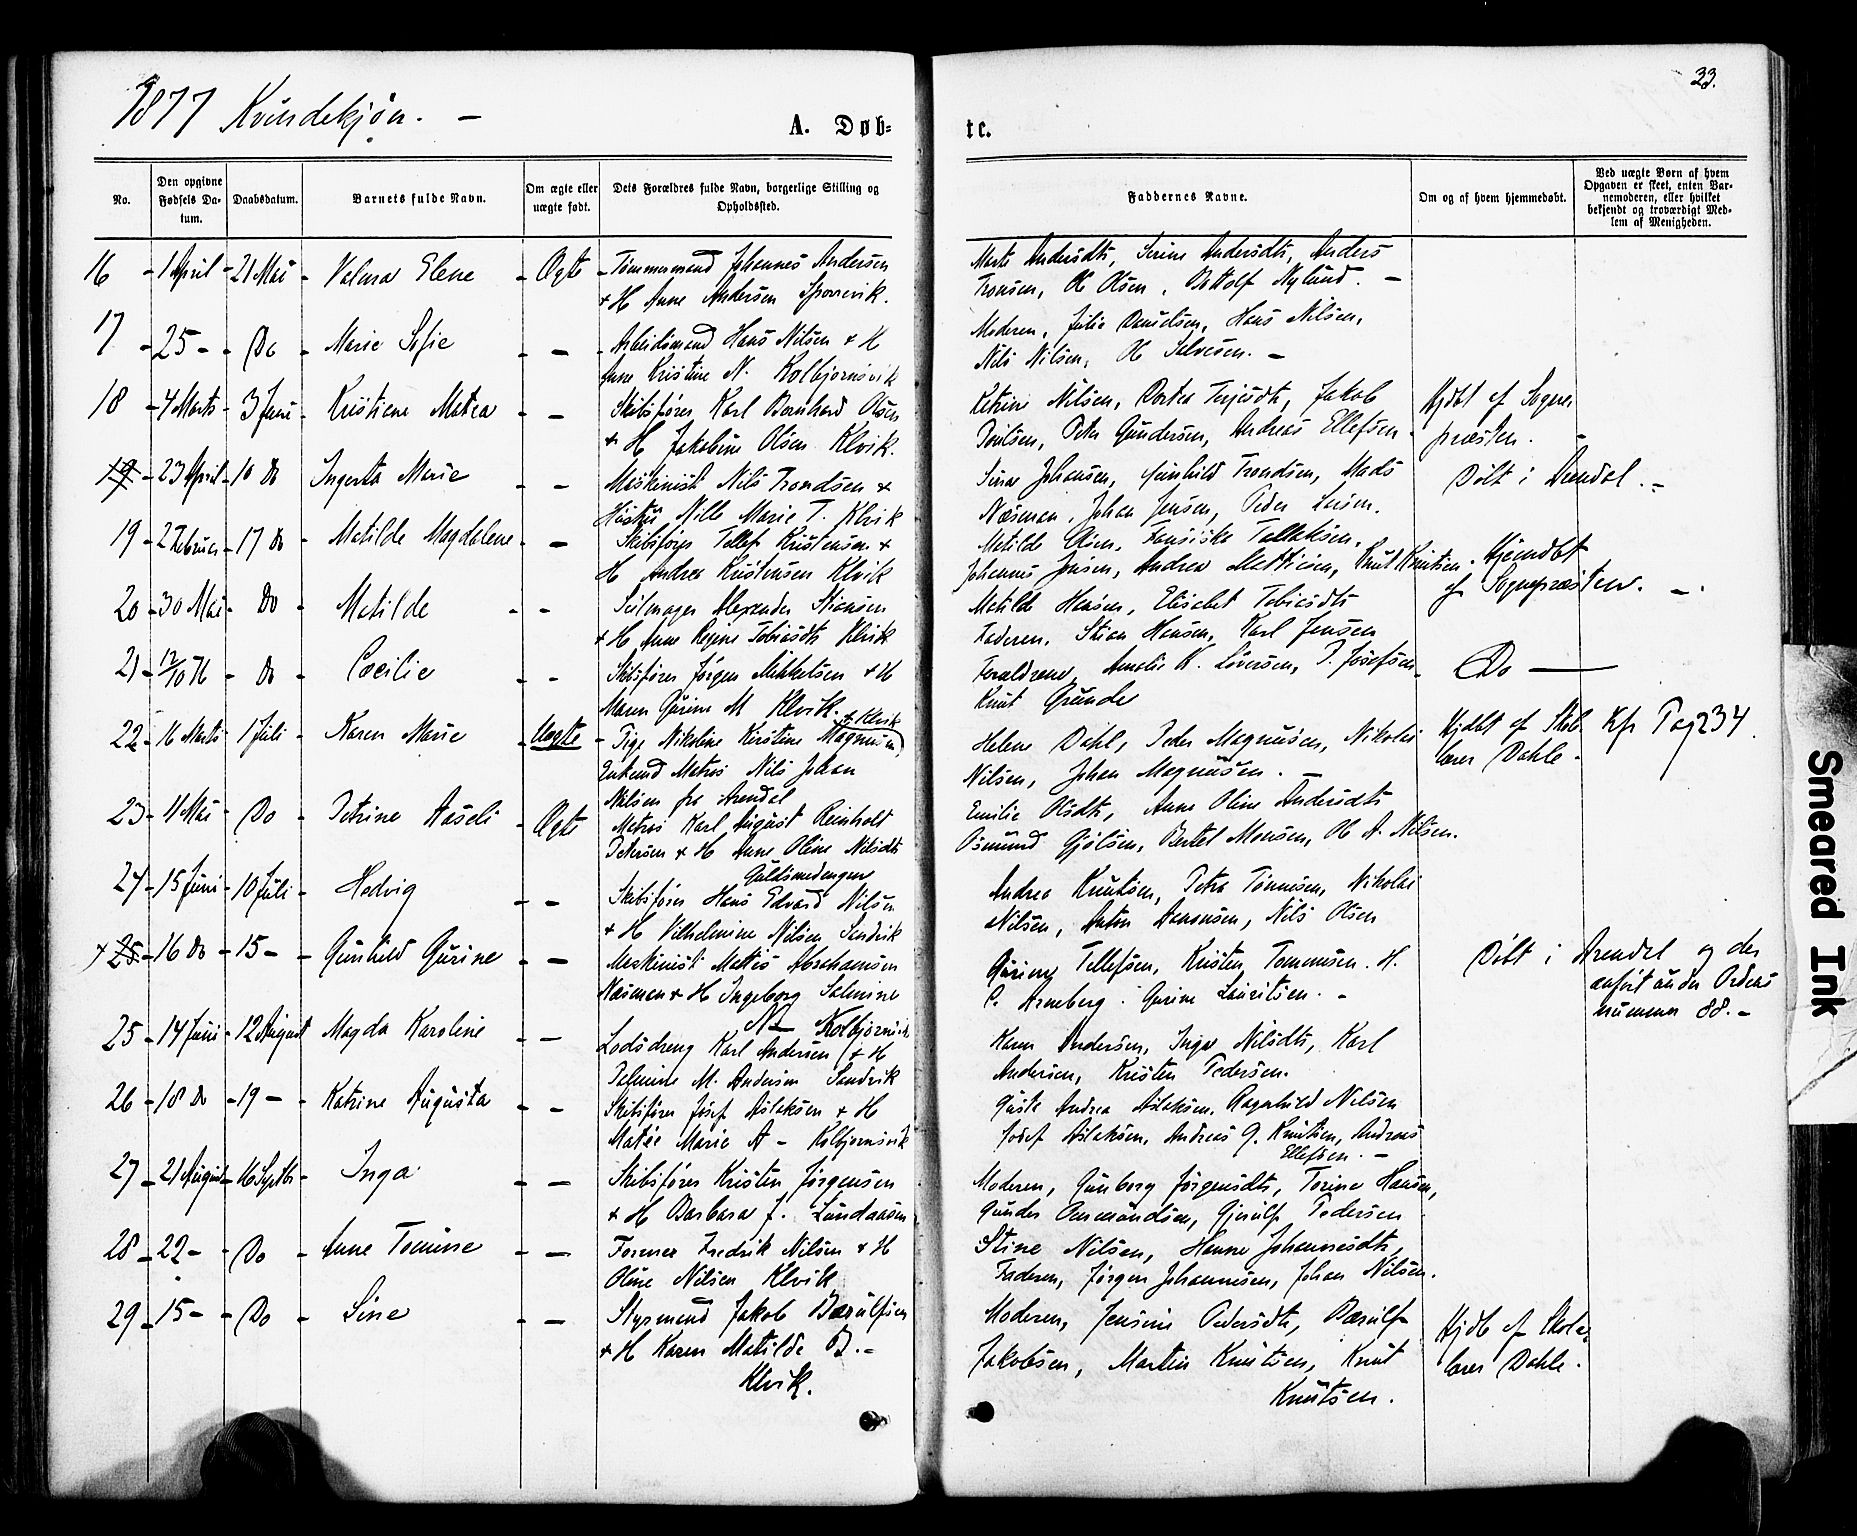 1877 Kvindekjøn. —
A. Døb=
te.
23.
No.
Den opgivne Fødsels Da-tum.
Daabsdatum.
Barnets fulde Navn.
Om ægte eller uægte født.
Dets Forældres fulde Navn, borgerlige Stilling og Opholdssted.
Faddernes Navne.
Om og af hvem hjemmedøbt.
Ved uægte Børn af hvem Opgaven er skeet, enten Bar-nemoderen, eller hvilket bekjendt og troværdigt Med-lem af Menigheden.
16 - 1 April - 21 Mai - Valma Elene - Ægte - Tømmermand Johannes Andersen
+ H Anne Andersen
Marte Andersdtr, Serine Andersdtr, Anders
Tronsen, Ole Olsen, Nylund. —
17 - 25 - - Do - Marie Sofie - — - Arbeidsmand Hans Nilsen + H
Anne Kristine N. Kolbjørnsvik
Moderen, Julie Danielsen, Hans Nilsen,
Nils Nilsen, Ole Salvesen. —
18 - 4 Marts - 3 Juni - Kristiane Matea - — Skibsfører Karl Bernhard Olsen
+ H Jakobine Olsen Klvik.
Nilsen, Dortea Terjesdtr, Jakob
Poulsen, Peter Gundersen, Andreas Ellefsen
Hjdbt af Sogne
præsten. -
19 - 23 April - 10 Do Ingerta Marie - — Maskinist Nils Trondsen +
Hustru Nille Marie T. Klvik
Johansen, Gunhild Trondsen, Mads
Næsman, Johan Jensen, Peder Larsen.
Døbt i Arendal. -
19 - 2 Februar - 17 Do - Matilde Magdalene - — Skibsfører Tellef Kristensen +
H Andrea Kristensen Klvik
Matilde Olsen, Tallaksen,
Johannes Jensen, Andrea Mathisen, Knut Knutsen.
Hjemdbt
af Sognepræsten. -
20 - 30 Mai - Do - Matilde - - Seilmager Alexander Stiansen
+ H Anne Regine Tobiasdtr Klvik
Matilde Hansen, Elisabet Tobiasdtr
Faderen, Stian Hansen, Karl Jensen
21 - 12/10 76 - Do - Cæcilie - - Skibsfører Jørgen Mikkelsen + H
Maren Gurine M Klvik.
Forældrene, Amalie K. Løversen, J. Josefsen
Knut Grunde
Do —
22 - 16 Marts - 1 Juli - Karen Marie - Uægte - Pige Nikoline Kirstine Magnusen
+ Klvik
Enkemd Matros Nils Johan
Nilsen fra Arendal
Helene Dahl, Peder Magnusen, Nikolai
Nilsen, Johan Magnusen. —
Hjdbt af Skole
lærer Dahle.
Kfr Pag 234.
23 - 11 Mai - Do - Petrine Aaseli - Ægte Matros Karl August Reinholt
Petersen + H Anne Oline Nilsdtr
Guldsmedengen
Emilie Olsdtr, Anne Oline Andersdtr
Osmund Gjølsen, Bertel Monsen, Ole A. Nilsen.
24 - 15 Juni - 10 Juli - Hedvig - — Skibsfører Hans Edvard Nilsen
+ H Vilhelmine Nilsen Sandvik
Andrea Knutsen, Petra Tønnesen, Nikolai
Nilsen, Anton Aanonsen, Nils Olsen
+ 25 - 16 Do - 15 - - Gunhild Gurine - — Maskinist Mathis Abrahamsen
Næsman + H Ingeborg Salmine
N — Kolbjørnsvik
Gurine Tellefsen, Kristen Tommesen. H.
C. Arneberg. Gurine Lauritsen. -
Døbt i Arendal og der
anført under Ordens
nummer 88. -
25 - 14 Juni - 12 August Magda Karoline - — Lodsdreng Karl Andersen + H
M. Andersen Sandvik
Karen Andersen, Inger Nilsdtr, Karl
Andersen, Kristen Pedersen.
26 - 18 Do - 19 - - Katrine Augusta - — Skibsfører Josef Aslaksen + H
Matée Marie A - Kolbjørnsvik
Guste Andrea Aslaksen, Ragnhild Nilsen
Josef Aslaksen, Andreas G. Knutsen, Andreas
Ellefsen. —
27 - 21 August - 16 Septbr - Inga - — Skibsfører Kristen Jørgensen
+ H Barbara J. Lundaasen
Moderen, Gunborg Jørgensdtr, Torine Hansen,
Gunder Osmundsen, Gjerulf Pedersen
28 - 22 - - Do - Anne Tomine - — Former Fredrik Nilsen + H
Oline Nilsen Klvik
Stine Nilsen, Hanne Johannesdtr,
Faderen, Jørgen Johannesen, Johan Nilsen.
29 - 15 - - Do - Sine - — Styrmand Jakob Bærulfsen
+ H Karen Matilde B. -
Klvik.
Moderen, Jensine Pedersdtr, Bærulf
Jakobsen, Martin Knutsen, Knut
Knutsen.
Hjdb af Skole
lærer Dahle.
Smeared Ink